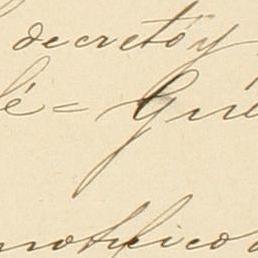 decretó y
lé = Gué
notifico